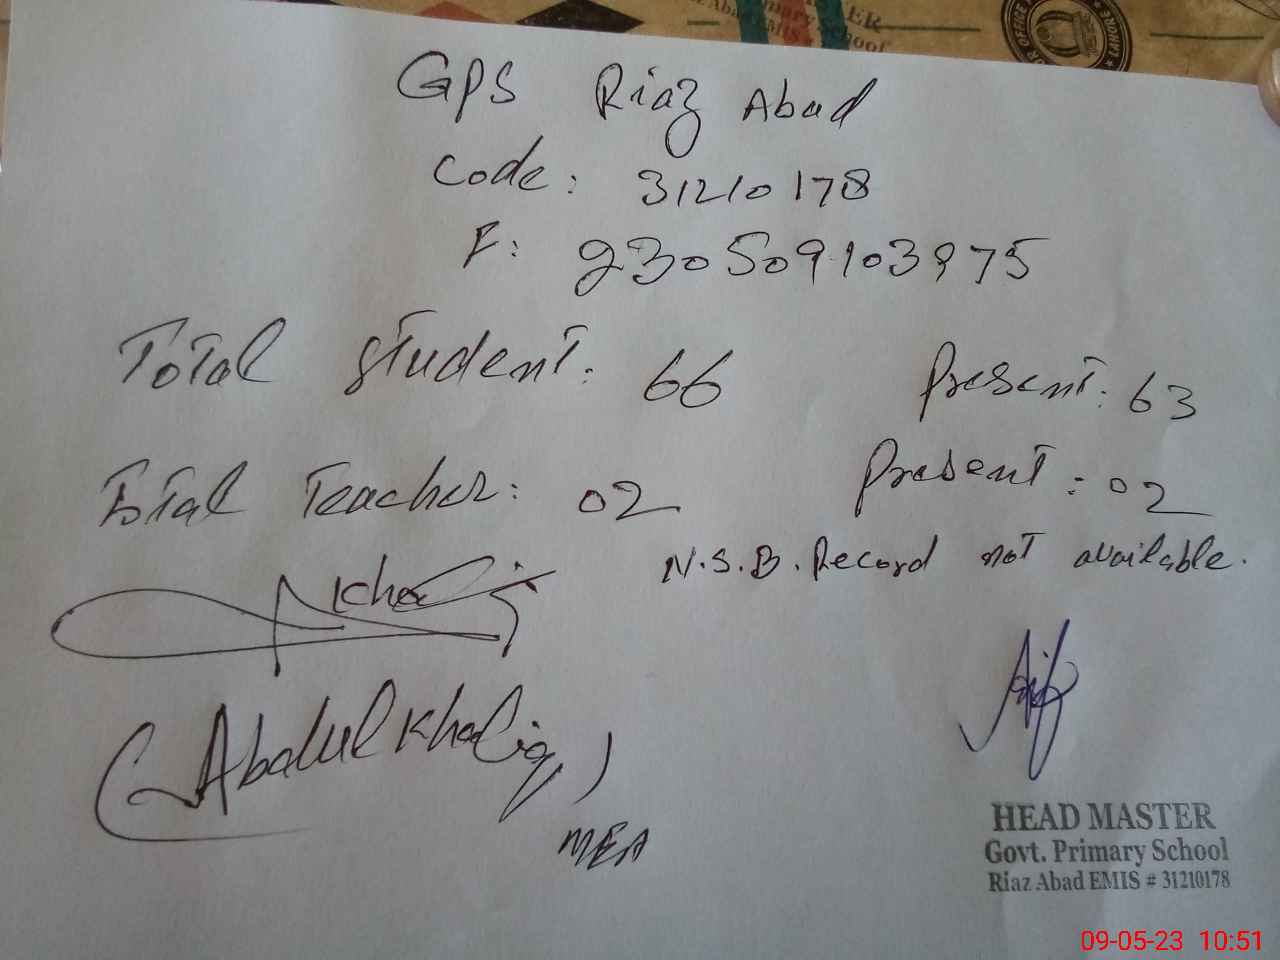 ER
Primary School
Abad EMIS #
OFFICE
LAHORE
GPS Riaz Abad
Code: 31210178
F: 230509103975
Total Student: 66 Present: 63
Total Teacher: 02 Present: 02
N.S.B. Record not available.
Khaliq
(Abdul Khaliq)
MEA
HEAD MASTER
Govt. Primary School
Riaz Abad EMIS # 31210178
09-05-23 10:51